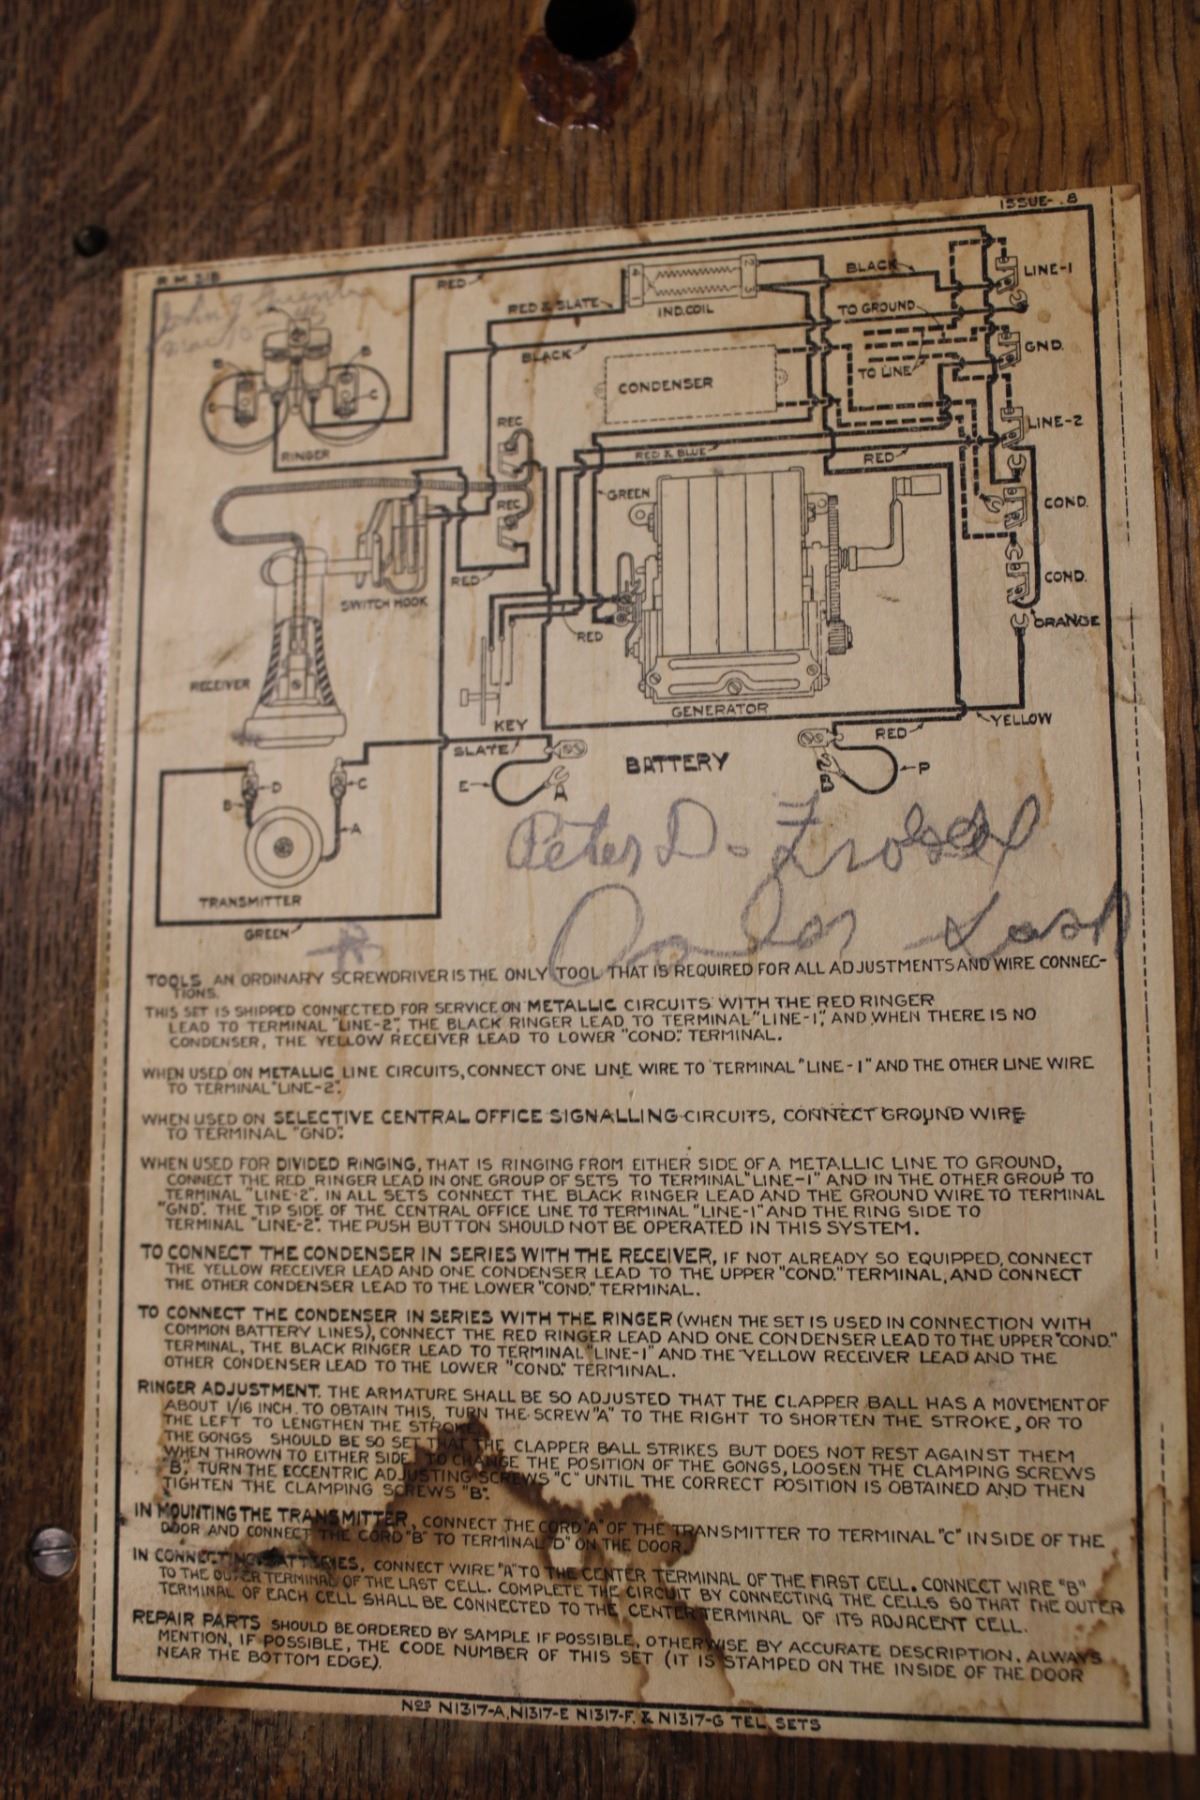 ISSUE-.8
R M 218
RED
RED & SLATE
IND.COIL
BLACK
LINE-1
TO GROUND
BLACK
GND.
TO LINE
CONDENSER
LINE-2
REC
RINGER
RED & BLUE
RED
GREEN
COND.
REC
RED
SWITCH HOOK
COND.
ORANGE
RED
RECEIVER
GENERATOR
KEY
YELLOW
SLATE
RED
BATTERY
E
A
B
P
D
C
B
A
TRANSMITTER
GREEN
Peter D.
TOOLS AN ORDINARY SCREWDRIVER IS THE ONLY TOOL THAT IS REQUIRED FOR ALL ADJUSTMENTS AND WIRE CONNEC-
TIONS.
THIS SET IS SHIPPED CONNECTED FOR SERVICE ON METALLIC CIRCUITS WITH THE RED RINGER
LEAD TO TERMINAL "LINE-2", THE BLACK RINGER LEAD TO TERMINAL "LINE-1", AND WHEN THERE IS NO
CONDENSER, THE YELLOW RECEIVER LEAD TO LOWER "COND." TERMINAL.
WHEN USED ON METALLIC LINE CIRCUITS, CONNECT ONE LINE WIRE TO TERMINAL "LINE-1" AND THE OTHER LINE WIRE
TO TERMINAL "LINE-2".
WHEN USED ON SELECTIVE CENTRAL OFFICE SIGNALLING CIRCUITS, CONNECT GROUND WIRE
TO TERMINAL "GND".
WHEN USED FOR DIVIDED RINGING, THAT IS RINGING FROM EITHER SIDE OF A METALLIC LINE TO GROUND,
CONNECT THE RED RINGER LEAD IN ONE GROUP OF SETS TO TERMINAL "LINE-1" AND IN THE OTHER GROUP TO
TERMINAL "LINE-2". IN ALL SETS CONNECT THE BLACK RINGER LEAD AND THE GROUND WIRE TO TERMINAL
"GND". THE TIP SIDE OF THE CENTRAL OFFICE LINE TO TERMINAL "LINE-1" AND THE RING SIDE TO
TERMINAL "LINE-2". THE PUSH BUTTON SHOULD NOT BE OPERATED IN THIS SYSTEM.
TO CONNECT THE CONDENSER IN SERIES WITH THE RECEIVER, IF NOT ALREADY SO EQUIPPED, CONNECT
THE YELLOW RECEIVER LEAD AND ONE CONDENSER LEAD TO THE UPPER "COND." TERMINAL, AND CONNECT
THE OTHER CONDENSER LEAD TO THE LOWER "COND." TERMINAL.
TO CONNECT THE CONDENSER IN SERIES WITH THE RINGER (WHEN THE SET IS USED IN CONNECTION WITH
COMMON BATTERY LINES), CONNECT THE RED RINGER LEAD AND ONE CONDENSER LEAD TO THE UPPER "COND."
TERMINAL, THE BLACK RINGER LEAD TO TERMINAL "LINE-1" AND THE YELLOW RECEIVER LEAD AND THE
OTHER CONDENSER LEAD TO THE LOWER "COND." TERMINAL.
RINGER ADJUSTMENT. THE ARMATURE SHALL BE SO ADJUSTED THAT THE CLAPPER BALL HAS A MOVEMENT OF
ABOUT 1/16 INCH. TO OBTAIN THIS, TURN THE SCREW "A" TO THE RIGHT TO SHORTEN THE STROKE, OR TO
THE LEFT TO LENGTHEN THE STROKE.
THE GONGS SHOULD BE SO SET THAT THE CLAPPER BALL STRIKES BUT DOES NOT REST AGAINST THEM
WHEN THROWN TO EITHER SIDE. TO CHANGE THE POSITION OF THE GONGS, LOOSEN THE CLAMPING SCREWS
"B", TURN THE ECCENTRIC ADJUSTING SCREWS "C" UNTIL THE CORRECT POSITION IS OBTAINED AND THEN
TIGHTEN THE CLAMPING SCREWS "B".
IN MOUNTING THE TRANSMITTER, CONNECT THE CORD "A" OF THE TRANSMITTER TO TERMINAL "C" INSIDE OF THE
DOOR AND CONNECT THE CORD "B" TO TERMINAL "D" ON THE DOOR.
IN CONNECTING BATTERIES, CONNECT WIRE "A" TO THE CENTER TERMINAL OF THE FIRST CELL. CONNECT WIRE "B"
TO THE OUTER TERMINAL OF THE LAST CELL. COMPLETE THE CIRCUIT BY CONNECTING THE CELLS SO THAT THE OUTER
TERMINAL OF EACH CELL SHALL BE CONNECTED TO THE CENTER TERMINAL OF ITS ADJACENT CELL.
REPAIR PARTS SHOULD BE ORDERED BY SAMPLE IF POSSIBLE, OTHERWISE BY ACCURATE DESCRIPTION. ALWAYS
MENTION, IF POSSIBLE, THE CODE NUMBER OF THIS SET (IT IS STAMPED ON THE INSIDE OF THE DOOR
NEAR THE BOTTOM EDGE).
NOS N1317-A, N1317-E N1317-F. & N1317-G TEL. SETS